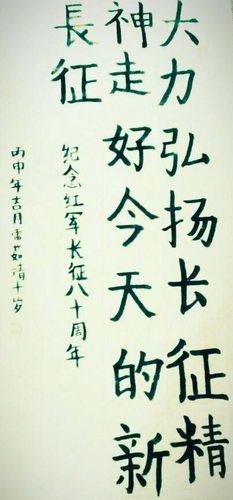 大力弘扬长征精
神走好今天的新
長征
纪念红军长征八十周年
丙申年吉月雷茹清十岁